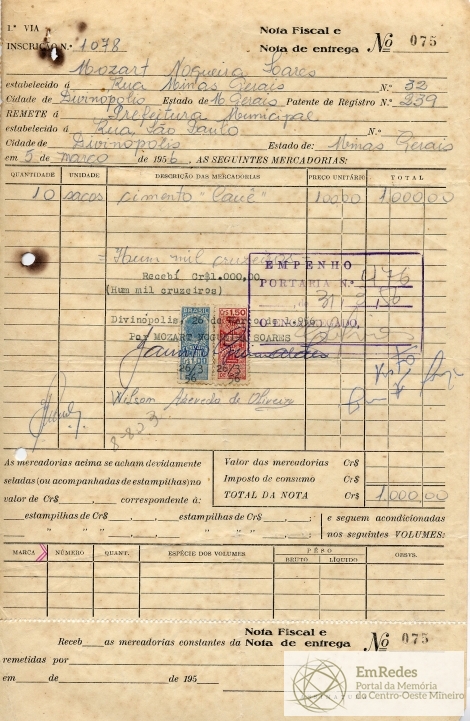 1.ª VIA
Nota Fiscal e
Nota de entrega No 075
INSCRIÇÃO N.º 1078
Mozart Nogueira Soares
estabelecido á Rua Minas Gerais N.º 32
Cidade de Divinópolis Estado de M Gerais Patente de Registro N.º 239
REMETE á Prefeitura Municipal
estabelecido á Rua São Paulo N.º
Cidade de Divinópolis Estado de: Minas Gerais
em 5 de março de 1956, AS SEGUINTES MERCADORIAS:
QUANTIDADE UNIDADE DESCRIÇÃO DAS MERCADORIAS PREÇO UNITÁRIO TOTAL
10 sacos cimento "Cauê" 100,00 1.000,00
= Hum mil cruzeiros
EMPENHO
Recebí Cr$1.000,00
PORTARIA N.º 476
(Hum mil cruzeiros)
31 3 56
Divinópolis, 26 de março de 1.956
Por MOZART NOGUEIRA SOARES
26/3 26/3
56 56
Wilson Azevedo de Oliveira
8-823
As mercadorias acima se acham devidamente
seladas (ou acompanhadas de estampilhas) no
valor de Cr$ , correspondente á:
Valor das mercadorias Cr$
Imposto de consumo Cr$
TOTAL DA NOTA Cr$ 1.000,00
estampilhas de Cr$ , ; estampilhas de Cr$ , ; e seguem acondicionadas
" " " , ; " " " , ; nos seguintes VOLUMES:
MARCA NÚMERO QUANT. ESPÉCIE DOS VOLUMES PÊSO OBSVS.
BRUTO LÍQUIDO
Nota Fiscal e
Receb as mercadorias constantes da Nota de entrega No 075
remetidas por
em de de 195
EmRedes
Portal da Memória
do Centro-Oeste Mineiro